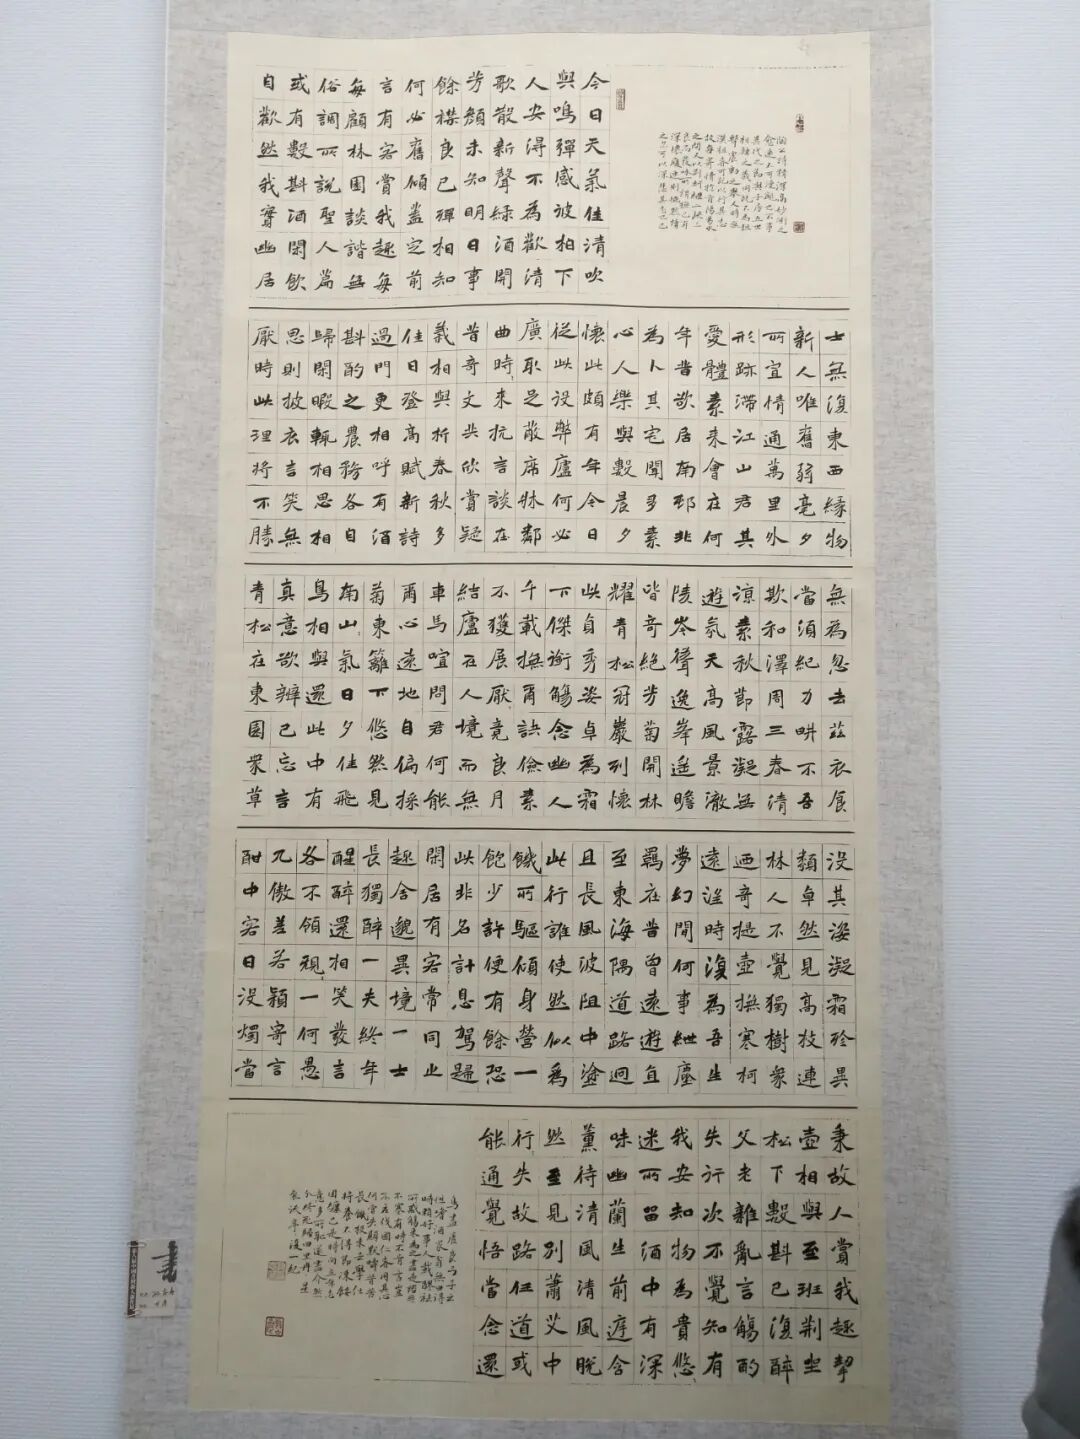 今日天氣佳清吹
與鳴彈感彼柏下
人安得不為歡清
歌散新聲緑酒開
芳顏未知明日事
餘襟良已殫相知
何必舊傾蓋定前
言有客賞我趣每
每顧林園談諧無
俗調所說聖人篇
或有數斟酒閑飲
自歡然我實幽居
士無復東西緣物
新人唯舊弱毫夕
所宜情通萬里外
形跡滯江山君其
愛體素來會在何
年昔欲居南邨非
為卜其宅聞多素
心人樂與數晨夕
懷此頗有年今日
從此設弊廬何必
廣取足蔽席牀鄰
曲時來抗言談在
昔奇文共欣賞疑
義相與析春秋多
佳日登高賦新詩
過門更相呼有酒
斟酌之農務各自
歸閑暇輒相思相
思則披衣言笑無
厭時此理將不勝
無為忽去茲衣食
當須紀力畊不吾
欺和澤周三春清
涼素秋節露凝無
遊氛天高風景澈
陵岑聳逸峯遥瞻
皆奇絕芳菊開林
耀青松冠巖列懷
此貞秀姿卓為霜
下傑銜觴念幽人
千載撫爾訣儉素
不獲展厭竟良月
結廬在人境而無
車馬喧問君何能
爾心遠地自偏採
菊東籬下悠然見
南山氣日夕佳飛
鳥相與還此中有
真意欲辨已忘言
青松在東園衆草
没其姿凝霜殄異
類卓然見高枝連
林人不覺獨樹衆
迺奇提壺撫寒柯
遠望時復為吾生
夢幻間何事紲塵
羈在昔曾遠遊直
至東海隅道路迥
且長風波阻中塗
此行誰使然似為
饑所驅傾身營一
飽少許便有餘恐
此非名計息駕歸
閑居有客常同止
趣舍邈異境一士
長獨醉一夫終年
醒醉還相笑發言
各不領規一何愚
兀傲差若穎寄言
酣中客日没燭當
秉故人賞我趣挈
壺相與至班荆坐
松下數斟已復醉
父老雜亂言觴酌
失行次不覺知有
我安知物為貴悠
迷所留酒中有深
味幽蘭生前庭含
薰待清風清風脱
然至見別蕭艾中
行失故路任道或
能通覺悟當念還